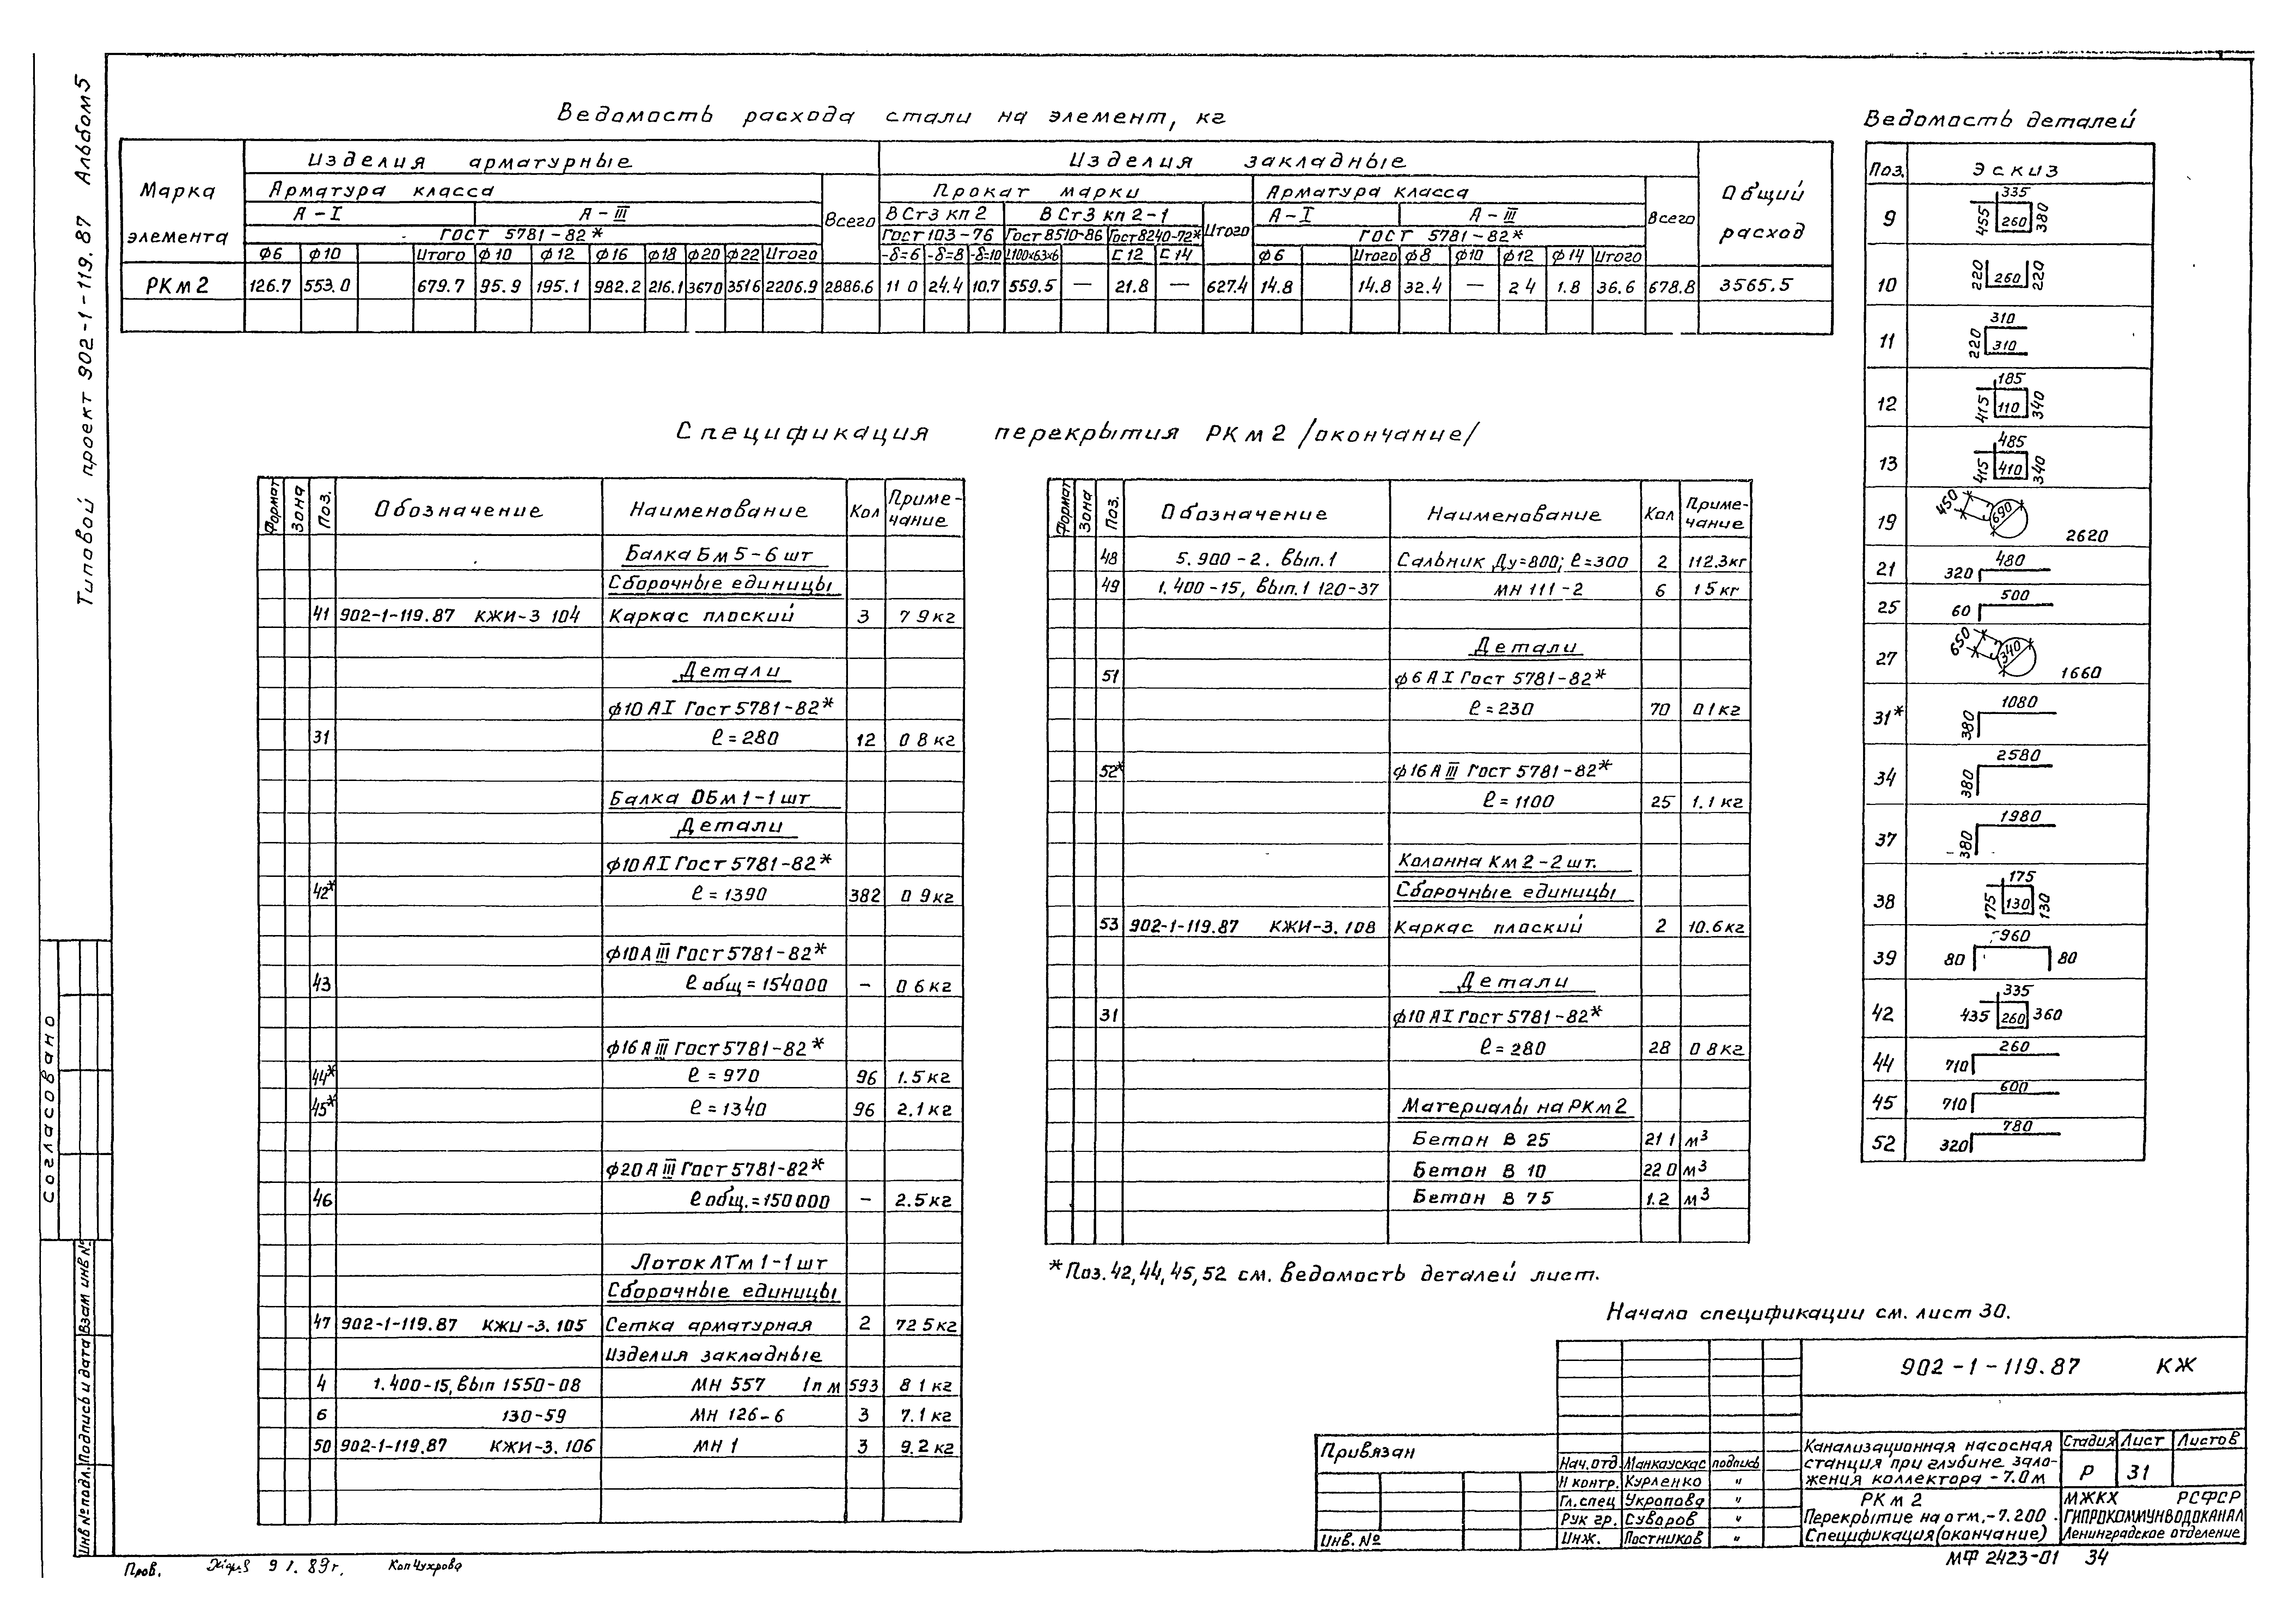 Типовой проект 902-1-119.87 Альбом 5
Ведомость расхода стали на элемент, кг
Марка элемента
Изделия арматурные
Изделия закладные
Общий расход
Арматура класса
Всего
Прокат марки
Арматура класса
Всего
А-I А-III
ВСт3 кп 2 ВСт3 кп 2-1 Итого
А-I А-III
ГОСТ 5781-82*
Гост 103-76 Гост 8510-86 Гост 8240-72*
ГОСТ 5781-82*
ф6 ф10 Итого ф10 ф12 ф16 ф18 ф20 ф22 Итого -δ=6 -δ=8 -δ=10 L100х63х6 С12 С14 ф6 Итого ф8 ф10 ф12 ф14 Итого
РКм2 126.7 553.0 679.7 95.9 195.1 982.2 216.1 3670 3516 2206.9 2886.6 11 0 24.4 10.7 559.5 — 21.8 — 627.4 14.8 14.8 32.4 — 2 4 1.8 36.6 678.8 3565.5
Ведомость деталей
Поз. Эскиз
9 335 455 260 380
10 220 260 220
11 310 220 310
12 185 415 110 340
13 485 415 410 340
19 450 690 2620
21 480 320
25 500 60
27 650 340 1660
31* 1080 380
34 2580 380
37 1980 380
38 175 175 130 130
39 960 80 80
42 335 435 260 360
44 260 710
45 600 710
52 780 320
Спецификация перекрытия РКм2 /окончание/
Формат Зона Поз. Обозначение Наименование Кол Примечание
Балка Бм5-6 шт
Сборочные единицы
41 902-1-119.87 КЖИ-3 104 Каркас плоский 3 7 9 кг
Детали
ф10 АI Гост 5781-82*
31 ℓ=280 12 0 8 кг
Балка ОБм1-1 шт
Детали
ф10 АI Гост 5781-82*
42* ℓ=1390 382 0 9 кг
ф10 А III Гост 5781-82*
43 ℓ общ=154000 – 0 6 кг
ф16 А III Гост 5781-82*
44* ℓ=970 96 1.5 кг
45* ℓ=1340 96 2.1 кг
ф20 А III Гост 5781-82*
46 ℓ общ.=150000 – 2.5 кг
Лоток ЛТм1-1 шт
Сборочные единицы
47 902-1-119.87 КЖИ-3.105 Сетка арматурная 2 72 5 кг
Изделия закладные
4 1.400-15, Вып 1550-08 МН 557 1п м 593 8 1 кг
6 130-59 МН 126-6 3 7.1 кг
50 902-1-119.87 КЖИ-3.106 МН 1 3 9.2 кг
Формат Зона Поз. Обозначение Наименование Кол Примечание
48 5.900-2. Вып.1 Сальник Ду=800; ℓ=300 2 112.3 кг
49 1.400-15, Вып.1 120-37 МН 111-2 6 1 5 кг
Детали
51 ф6 А I Гост 5781-82*
ℓ=230 70 0 1 кг
52* ф16 А III Гост 5781-82*
ℓ=1100 25 1.1 кг
Колонна Км2-2 шт.
Сборочные единицы
53 902-1-119.87 КЖИ-3.108 Каркас плоский 2 10.6 кг
Детали
31 ф10 АI Гост 5781-82*
ℓ=280 28 0 8 кг
Материалы на РКм2
Бетон В 25 21 1 м³
Бетон В 10 22 0 м³
Бетон В 7 5 1.2 м³
*Поз. 42, 44, 45, 52 см. Ведомость деталей лист.
Начало спецификации см. лист 30.
902-1-119.87 КЖ
Привязан
Инв. №
Нач. отд. Манкаускас подпись
Н контр. Курленко "
Гл. спец Укропова "
Рук гр. Суворов "
Инж. Постников "
Канализационная насосная станция при глубине заложения коллектора -7.0 м
Стадия Лист Листов
Р 31
РКм2
Перекрытие на отм. -7.200.
Спецификация (окончание)
МЖКХ РСФСР
ГИПРОКОММУНВОДОКАНАЛ
Ленинградское отделение
МФ 2423-01 34
Согласовано
Инв № подл. Подпись и дата Взам инв №
Пров. 9 1. 89 г. Коп Чухрова